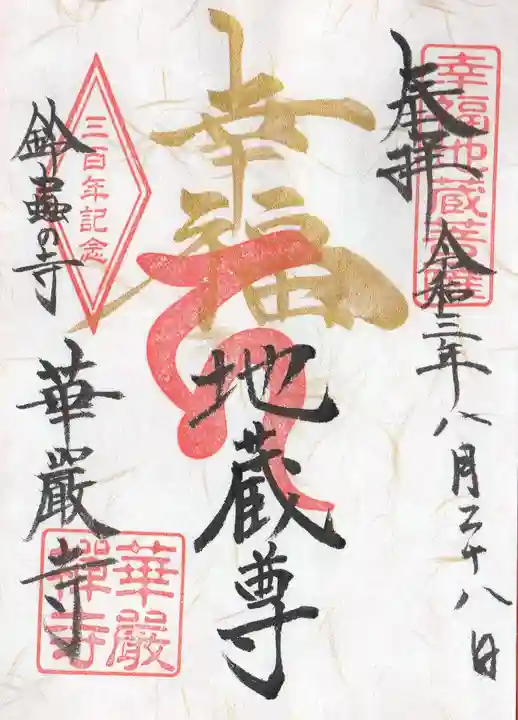 幸福地蔵菩薩
奉拝
令和三年八月二十八日
幸福
地蔵尊
三百年記念
鈴蟲の寺
華嚴寺
華嚴
禪寺